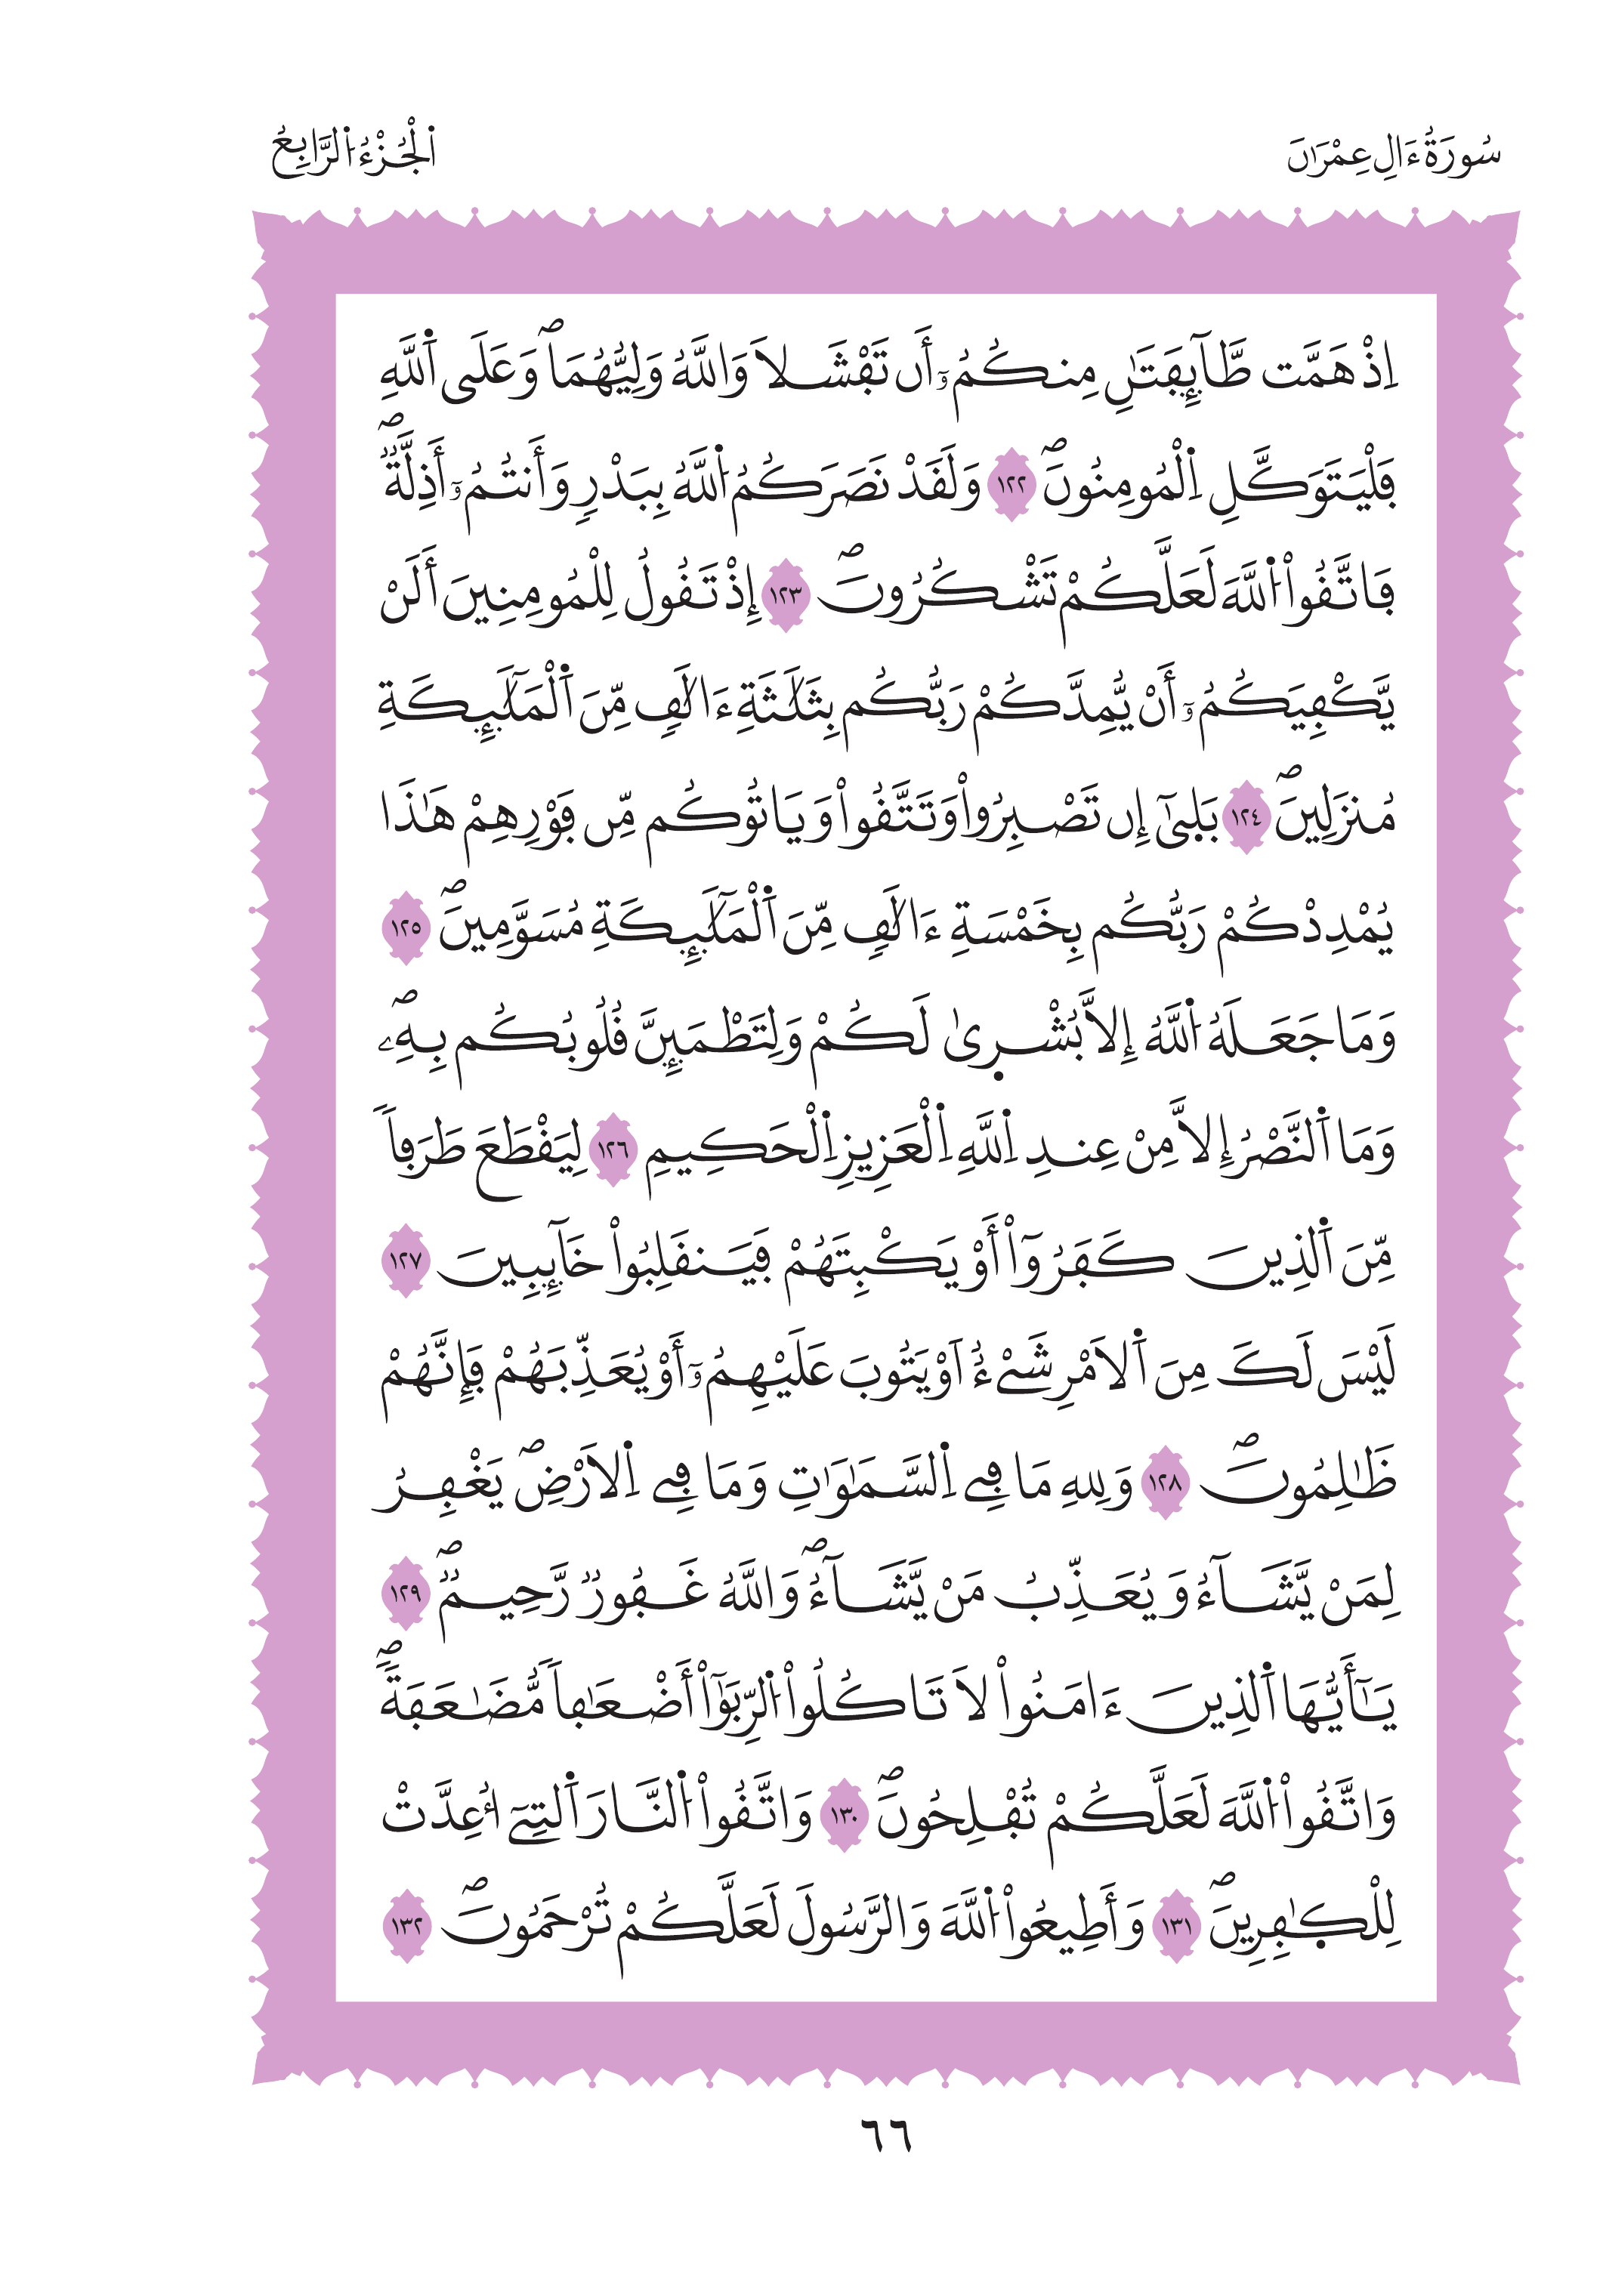 سُورَةُ ءَالِ عِمْرَٰنَ
اَ۬لْجُزْءُ اُ۬لرَّابِعُ
اِذْ هَمَّت طَّآئِفَتَٰنِ مِنكُمُۥٓ أَن تَفْشَلَا وَاللَّهُ وَلِيُّهُمَاۖ وَعَلَى اَ۬للَّهِ
فَلْيَتَوَكَّلِ اِ۬لْمُومِنُونَۖ ١٢٢ وَلَقَدْ نَصَرَكُمُ اُ۬للَّهُ بِبَدْرٖ وَأَنتُمُۥٓ أَذِلَّةٞۖ
فَاتَّقُواْ اُ۬للَّهَ لَعَلَّكُمْ تَشْكُرُونَۖ ١٢٣ إِذْ تَقُولُ لِلْمُومِنِينَ أَلَنْ
يَّكْفِيَكُمُۥٓ أَنْ يُّمِدَّكُمْ رَبُّكُم بِثَلَٰثَةِ ءَالَٰفٖ مِّنَ اَ۬لْمَلَٰٓئِكَةِ
مُنزَلِينَۖ ١٢٤ بَلَىٰٓ إِن تَصْبِرُواْ وَتَتَّقُواْ وَيَاتُوكُم مِّن فَوْرِهِمْ هَٰذَا
يُمْدِدْكُمْ رَبُّكُم بِخَمْسَةِ ءَالَٰفٖ مِّنَ اَ۬لْمَلَٰٓئِكَةِ مُسَوَّمِينَۖ ١٢٥
وَمَا جَعَلَهُ اُ۬للَّهُ إِلَّا بُشْرٜىٰ لَكُمْ وَلِتَطْمَئِنَّ قُلُوبُكُم بِهِۦۖ
وَمَا اَ۬لنَّصْرُ إِلَّا مِنْ عِندِ اِ۬للَّهِ اِ۬لْعَزِيزِ اِ۬لْحَكِيمِ ١٢٦ لِيَقْطَعَ طَرَفاٗ
مِّنَ اَ۬لذِينَ كَفَرُوٓاْ أَوْ يَكْبِتَهُمْ فَيَنقَلِبُواْ خَآئِبِينَ ١٢٧
لَيْسَ لَكَ مِنَ اَ۬لَامْرِ شَےْءُ اَوْ يَتُوبَ عَلَيْهِمُۥٓ أَوْ يُعَذِّبَهُمْ فَإِنَّهُمْ
ظَٰلِمُونَۖ ١٢٨ وَلِلهِ مَا فِے اِ۬لسَّمَٰوَٰتِ وَمَا فِے اِ۬لَارْضِۖ يَغْفِرُ
لِمَنْ يَّشَآءُ وَيُعَذِّبُ مَنْ يَّشَآءُۖ وَاللَّهُ غَفُورٞ رَّحِيمٞۖ ١٢٩
يَٰٓأَيُّهَا اَ۬لذِينَ ءَامَنُواْ لَا تَاكُلُواْ اُ۬لرِّبَوٰٓاْ أَضْعَٰفاٗ مُّضَٰعَفَةٗۖ
وَاتَّقُواْ اُ۬للَّهَ لَعَلَّكُمْ تُفْلِحُونَۖ ١٣٠ وَاتَّقُواْ اُ۬لنَّارَ اَ۬لتِےٓ أُعِدَّتْ
لِلْكٰٜفِرِينَۖ ١٣١ وَأَطِيعُواْ اُ۬للَّهَ وَالرَّسُولَ لَعَلَّكُمْ تُرْحَمُونَۖ ١٣٢
٦٦